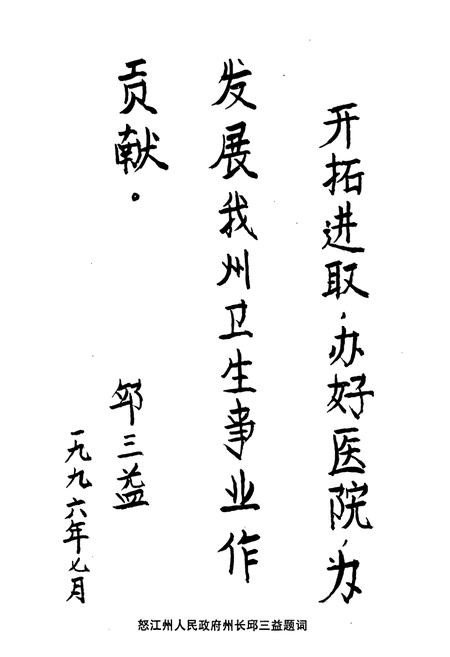 开拓进取，办好医院，为
发展我州卫生事业作
贡献。
邱三益
一九九六年七月
怒江州人民政府州长邱三益题词